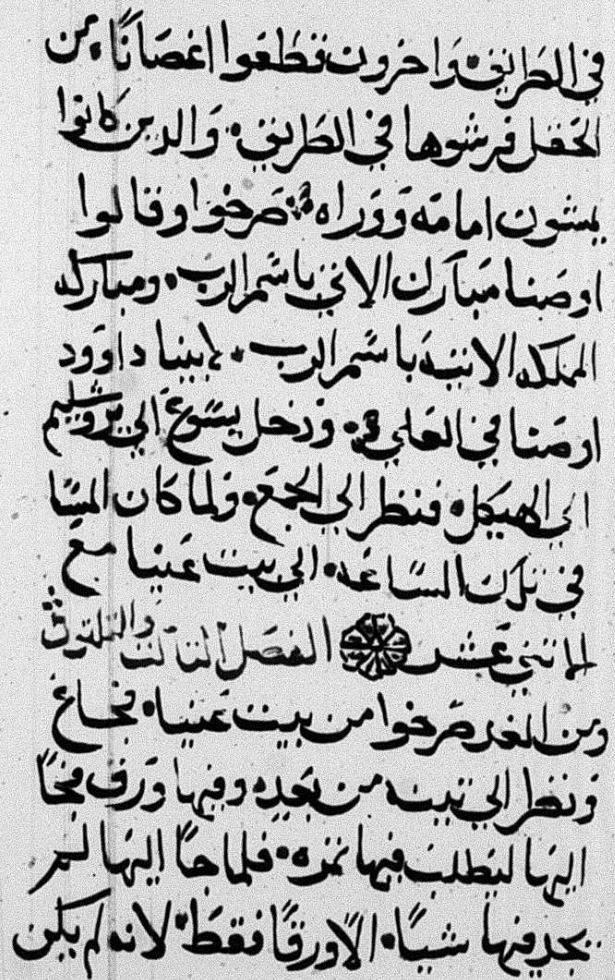 في الطريق. واخرون قطعوا اغصانًا من
الحقل فرشوها في الطريق. والدين كانوا
يمشون امامه ووراه. صرخوا وقالوا
اوصنا مبارك الاتي باسم الرب. ومباركه
المملكه الاتيه باسم الرب. لابينا داوود
اوصنا في العلي. ودخل يسوع الي يروشليم
الي الهيكل. فنظر الي الجمع. ولما كان المسا
في تلك الساعه. الي بيت عنيا مع
الاتني عشر الفصل التالت والتلتون
ومن الغد خرخوا من بيت عنيا. فجاع
ونظر الي تينه من بعد وفيها ورق فجا
اليها ليطلب فيها تمره. فلما جا اليها لم
يجد فيها شيًا. الا ورقًا فقط. لانه لم يكن